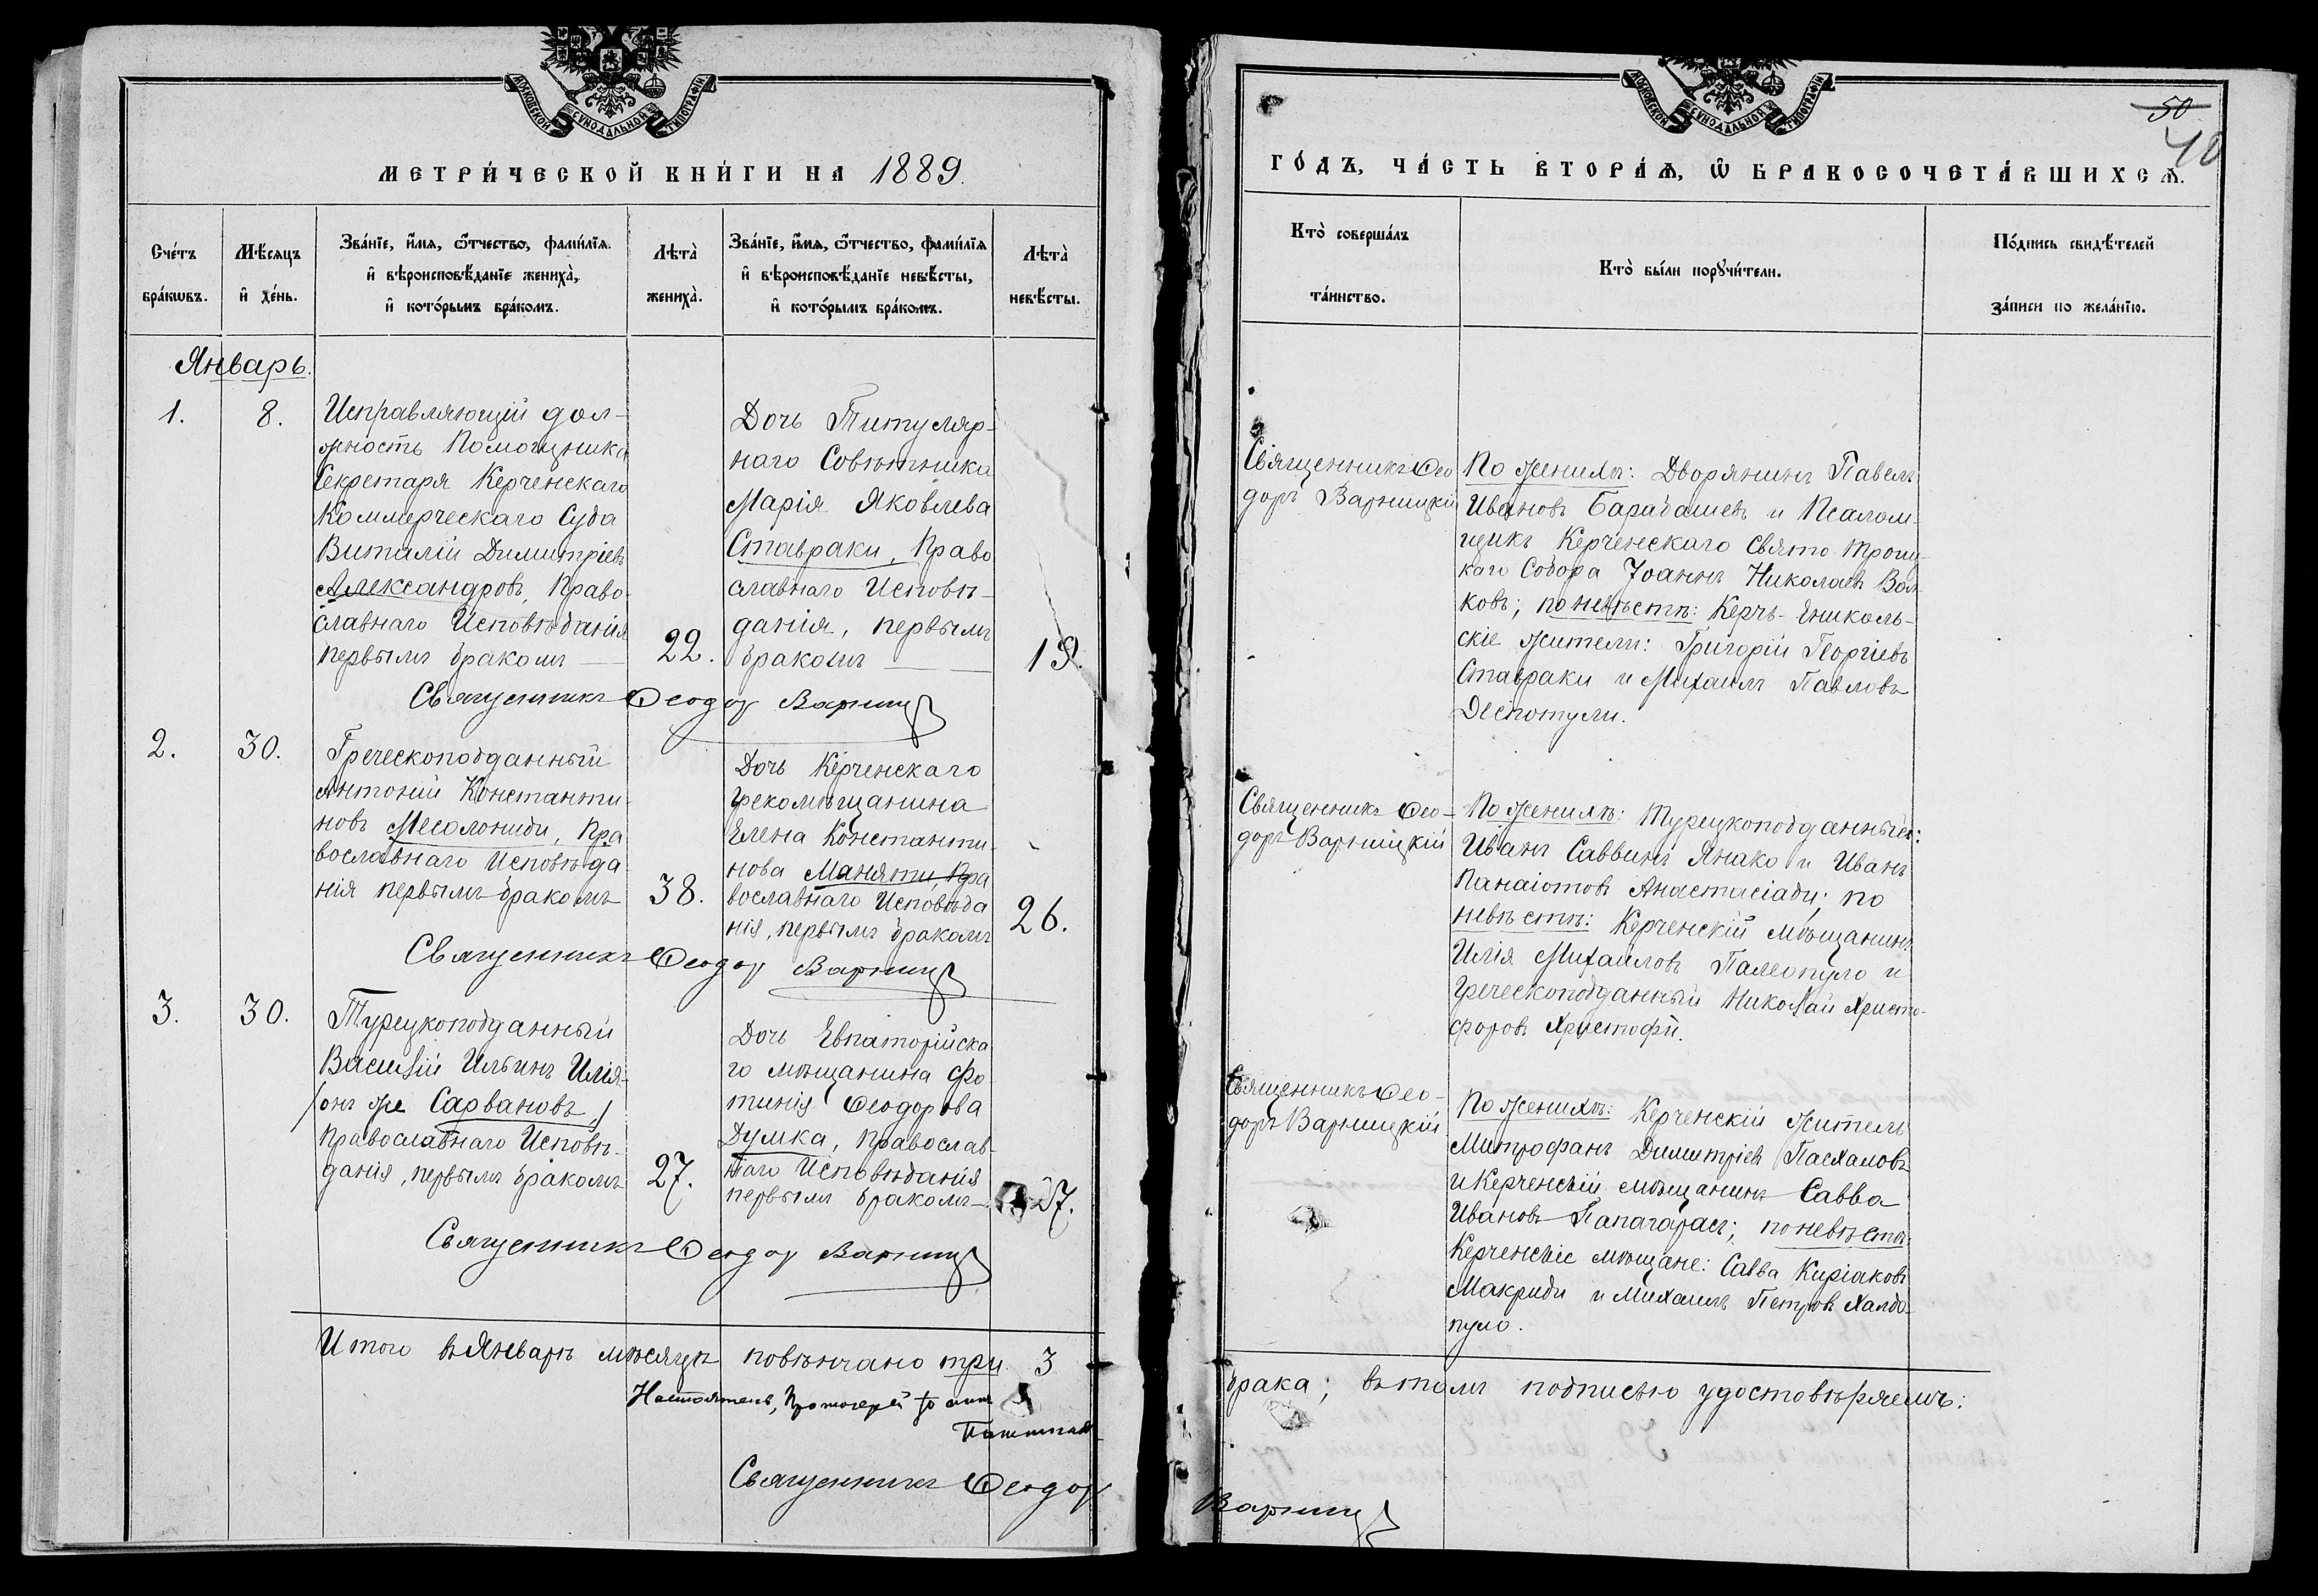 МОСКОВСКОЙ СѴНОДАЛЬНОЙ ТИПОГРАФІИ
МЕТРИ́ЧЕСКОЙ КНИ́ГИ НА 1889.
Сче́тъ бра́кѡвъ.
Мѣ́сяцъ и҆ де́нь.
Зва́нїе, и҆́мѧ, ѻ҆́тчество, фами́лїѧ
и҆ вѣроисповѣ́данїе жениха̀,
и҆ кото́рымъ бра́комъ.
Лѣта̀ жениха̀.
Зва́нїе, и҆́мѧ, ѻ҆́тчество, фами́лїѧ
и҆ вѣроисповѣ́данїе невѣ́сты,
и҆ кото́рымъ бра́комъ.
Лѣта̀ невѣ́сты.
Январь.
1.
8.
Исправляющій дол-
жность Помощника
Секретаря Керченскаго
Коммерческаго Суда
Виталій Димитріевъ
Александровъ, Право-
славнаго Исповѣданія
первымъ бракомъ
22.
Дочь Титуляр-
наго Совѣтника
Марія Яковлева
Ставраки, Право
славнаго Исповѣ-
данія, первымъ
бракомъ
19.
Священникъ Ѳеодоръ Варниц
2.
30.
Греческоподданный
Антоній Константи-
новъ Месолониди, Пра
вославнаго Исповѣда
нія первымъ бракомъ
38.
Дочь Керченскаго
грекомѣщанина
Елена Константи-
нова Маняти, Пра
вославнаго Исповѣда
нія, первымъ бракомъ
26.
Священникъ Ѳеодоръ Варниц
3.
30.
Турецкоподданный
Василій Ильинъ Илія-
/онъ же Сарвановъ/
Православнаго Исповѣ-
данія, первымъ бракомъ
27.
Дочь Евпаторійска
го мѣщанина Фо-
тинія Ѳеодорова
Думка, Православ-
наго Исповѣданія
первымъ бракомъ
27.
Священникъ Ѳеодоръ Варниц
Итого въ Январѣ мѣсяцѣ повѣнчано три 3
Настоятель, Протоіерей Іоаннъ
Священникъ Ѳеодоръ
МОСКОВСКОЙ СѴНОДАЛЬНОЙ ТИПОГРАФІИ
50
40
ГО́ДЪ, ЧА́СТЬ ВТОРА́Ѧ, Ѡ҆ БРАКОСОЧЕТА́ВШИХСѦ.
Кто̀ соверша́лъ
та́инство.
Кто̀ бы́ли порꙋчи́тели.
По́дпись свидѣ́телей
за́писи по жела́нїю.
Священникъ Ѳео
доръ Варницкій
По женихѣ: Дворянинъ Павелъ
Ивановъ Барабашевъ и Псалом-
щикъ Керченскаго Свято-Троиц-
каго Собора Іоаннъ Николаевъ Вол-
ковъ; по невѣстѣ: Керчь-Ениколь-
скіе жители: Григорій Георгіевъ
Ставраки и Михаилъ Павловъ
Деспотули.
Священникъ Ѳео-
доръ Варницкій
По женихѣ: Турецкоподданные:
Иванъ Саввинъ Янако и Иванъ
Панаіотовъ Анастасіади; по
невѣстѣ: Керченскій мѣщанинъ
Илія Михаиловъ Палеопуло и
Греческоподданный Николай Христо-
форовъ Христофи.
Священникъ Ѳео-
доръ Варницкій
По женихѣ: Керченскій житель
Митрофанъ Димитріевъ Пасхаловъ
и Керченскій мѣщанинъ Савва
Ивановъ Папагарасъ; по невѣстѣ
Керченскіе мѣщане: Савва Киріаковъ
Макриди и Михаилъ Петровъ Халдо-
пуло.
брака; въ томъ подписью удостовѣряемъ:
Варниц